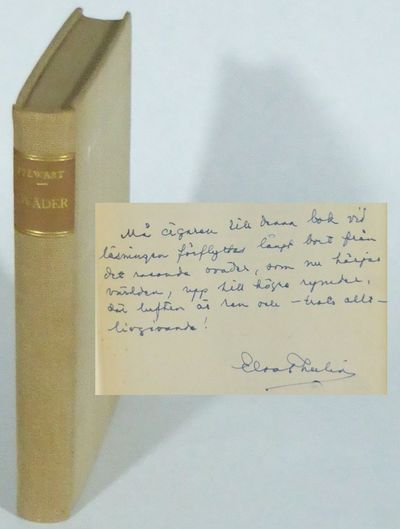 STEWART
OVÄDER
Må ägaren till denna bok vid
läsningen förflyttas långt bort från
det rasande ovader, som nu härjar
världen, upp till högre rymder,
där luften är ren och – trots allt –
livgivande!
Elsa Thulin